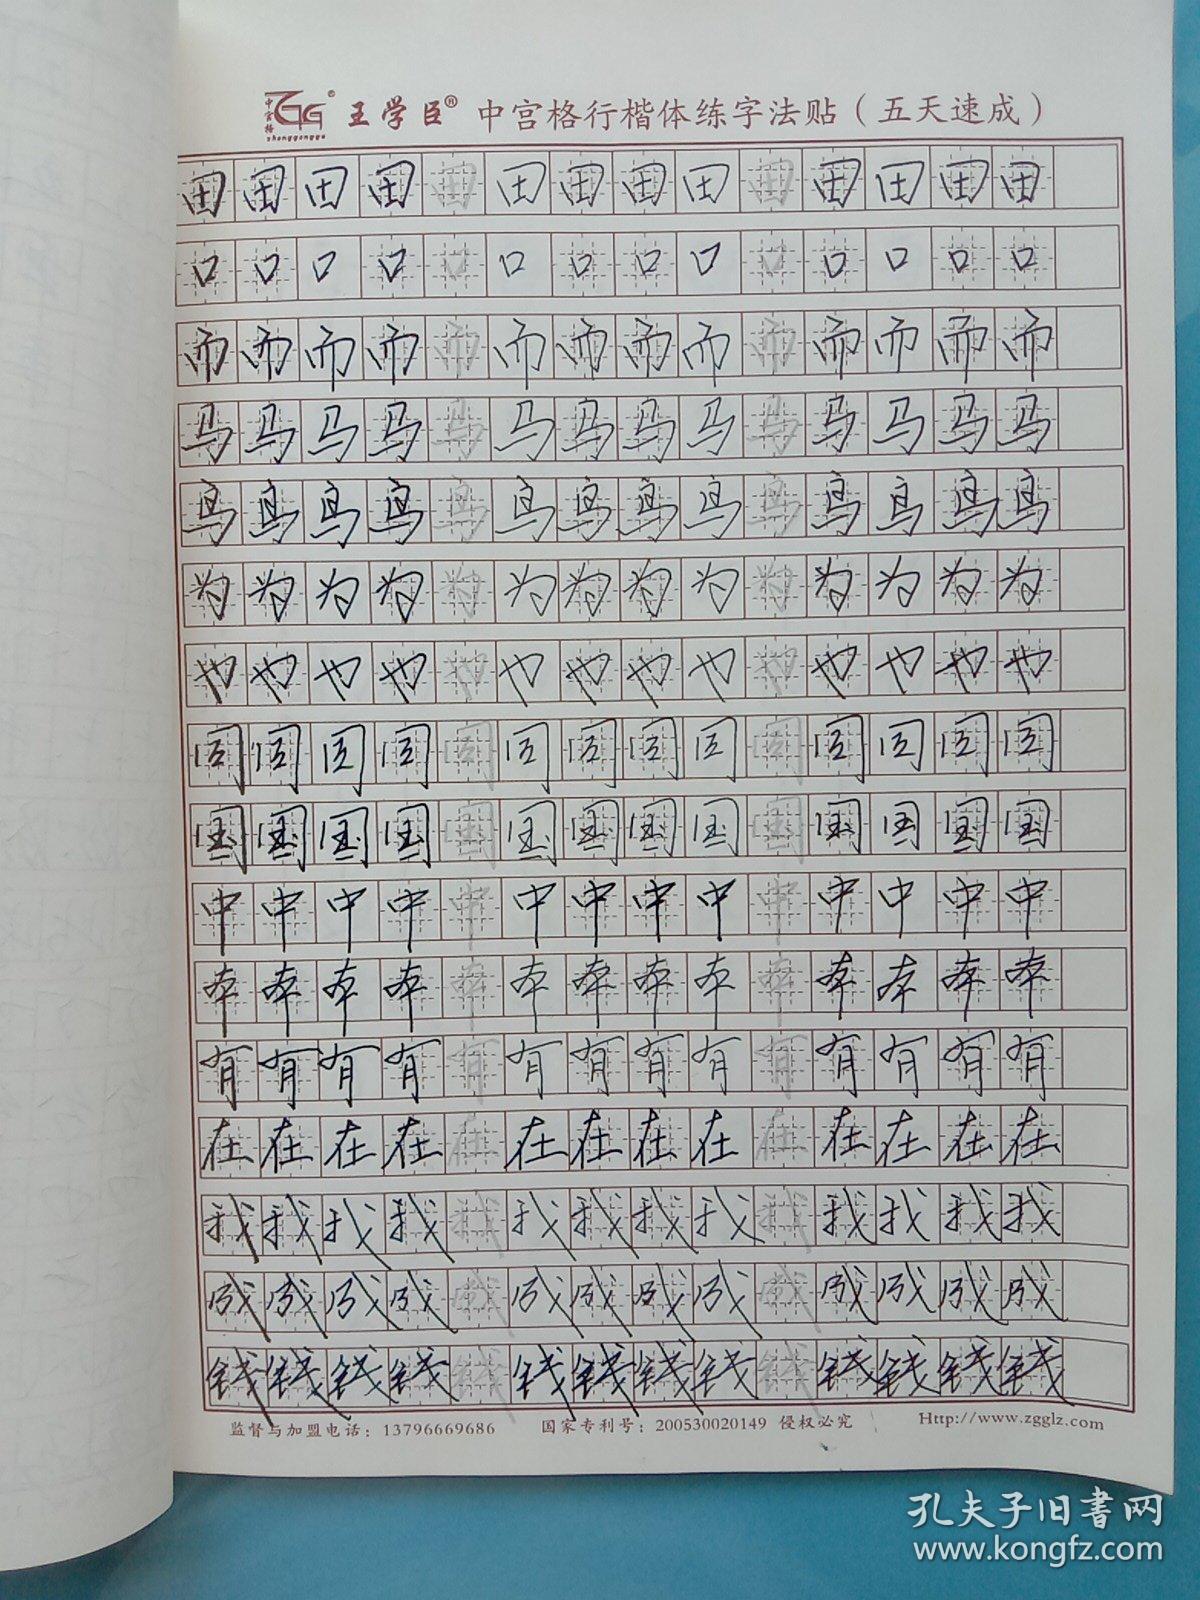 中宫格 ZGG zhonggongge 王学臣® 中宫格行楷体练字法贴（五天速成）
田田田田田田田田田田田田田田
口口口口口口口口口口口口口口
而而而而而而而而而而而而而而
马马马马马马马马马马马马马马
鸟鸟鸟鸟鸟鸟鸟鸟鸟鸟鸟鸟鸟鸟
为为为为为为为为为为为为为为
也也也也也也也也也也也也也也
同同同同同同同同同同同同同同
国国国国国国国国国国国国国国
中中中中中中中中中中中中中中
本本本本本本本本本本本本本本
有有有有有有有有有有有有有有
在在在在在在在在在在在在在在
我我我我我我我我我我我我我我
成成成成成成成成成成成成成成
钱钱钱钱钱钱钱钱钱钱钱钱钱钱
监督与加盟电话：13796669686 国家专利号：200530020149 侵权必究 Http://www.zgglz.com
孔夫子旧书网
www.kongfz.com